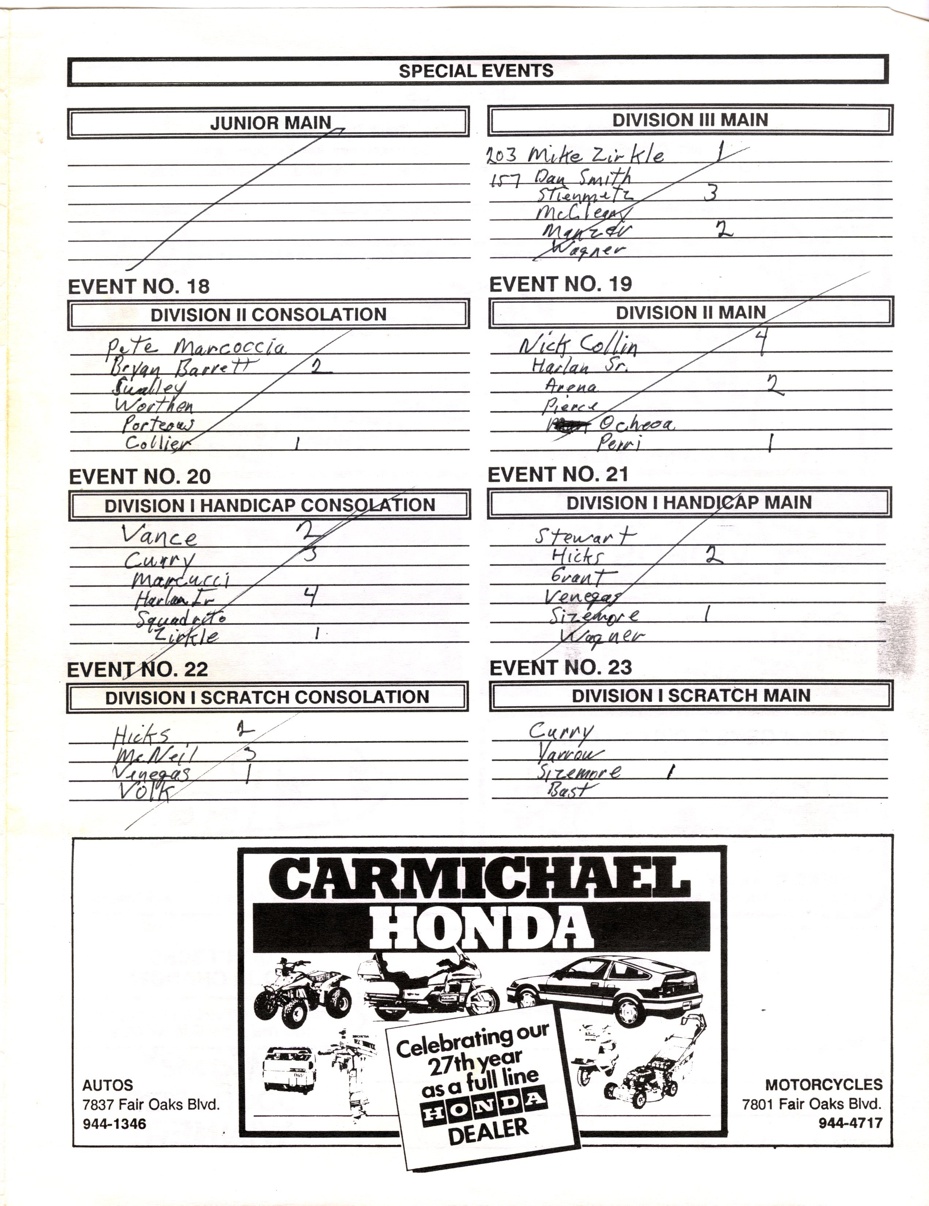 SPECIAL EVENTS
JUNIOR MAIN
DIVISION III MAIN
203 Mike Zirkle 1
157 Dan Smith
Stienmetz 3
McCleary
Manzer 2
Wagner
EVENT NO. 18
DIVISION II CONSOLATION
Pete Marcoccia
Bryan Barrett 2
Worthen
Porteous
Collier 1
EVENT NO. 19
DIVISION II MAIN
Nick Collin 4
Harlan Sr.
Arena 2
Pierce
Ochoa
Perri 1
EVENT NO. 20
DIVISION I HANDICAP CONSOLATION
Vance 2
Curry 3
Marcucci
Harlan Jr 4
Squadrito
Zirkle 1
EVENT NO. 21
DIVISION I HANDICAP MAIN
Stewart
Hicks 2
Grant
Venegas
Sizemore 1
Wagner
EVENT NO. 22
DIVISION I SCRATCH CONSOLATION
Hicks 2
McNeil 3
Venegas 1
Volk
EVENT NO. 23
DIVISION I SCRATCH MAIN
Curry
Yarrow
Sizemore 1
Bast
CARMICHAEL
HONDA
Celebrating our
27th year
as a full line
HONDA
DEALER
AUTOS
7837 Fair Oaks Blvd.
944-1346
MOTORCYCLES
7801 Fair Oaks Blvd.
944-4717